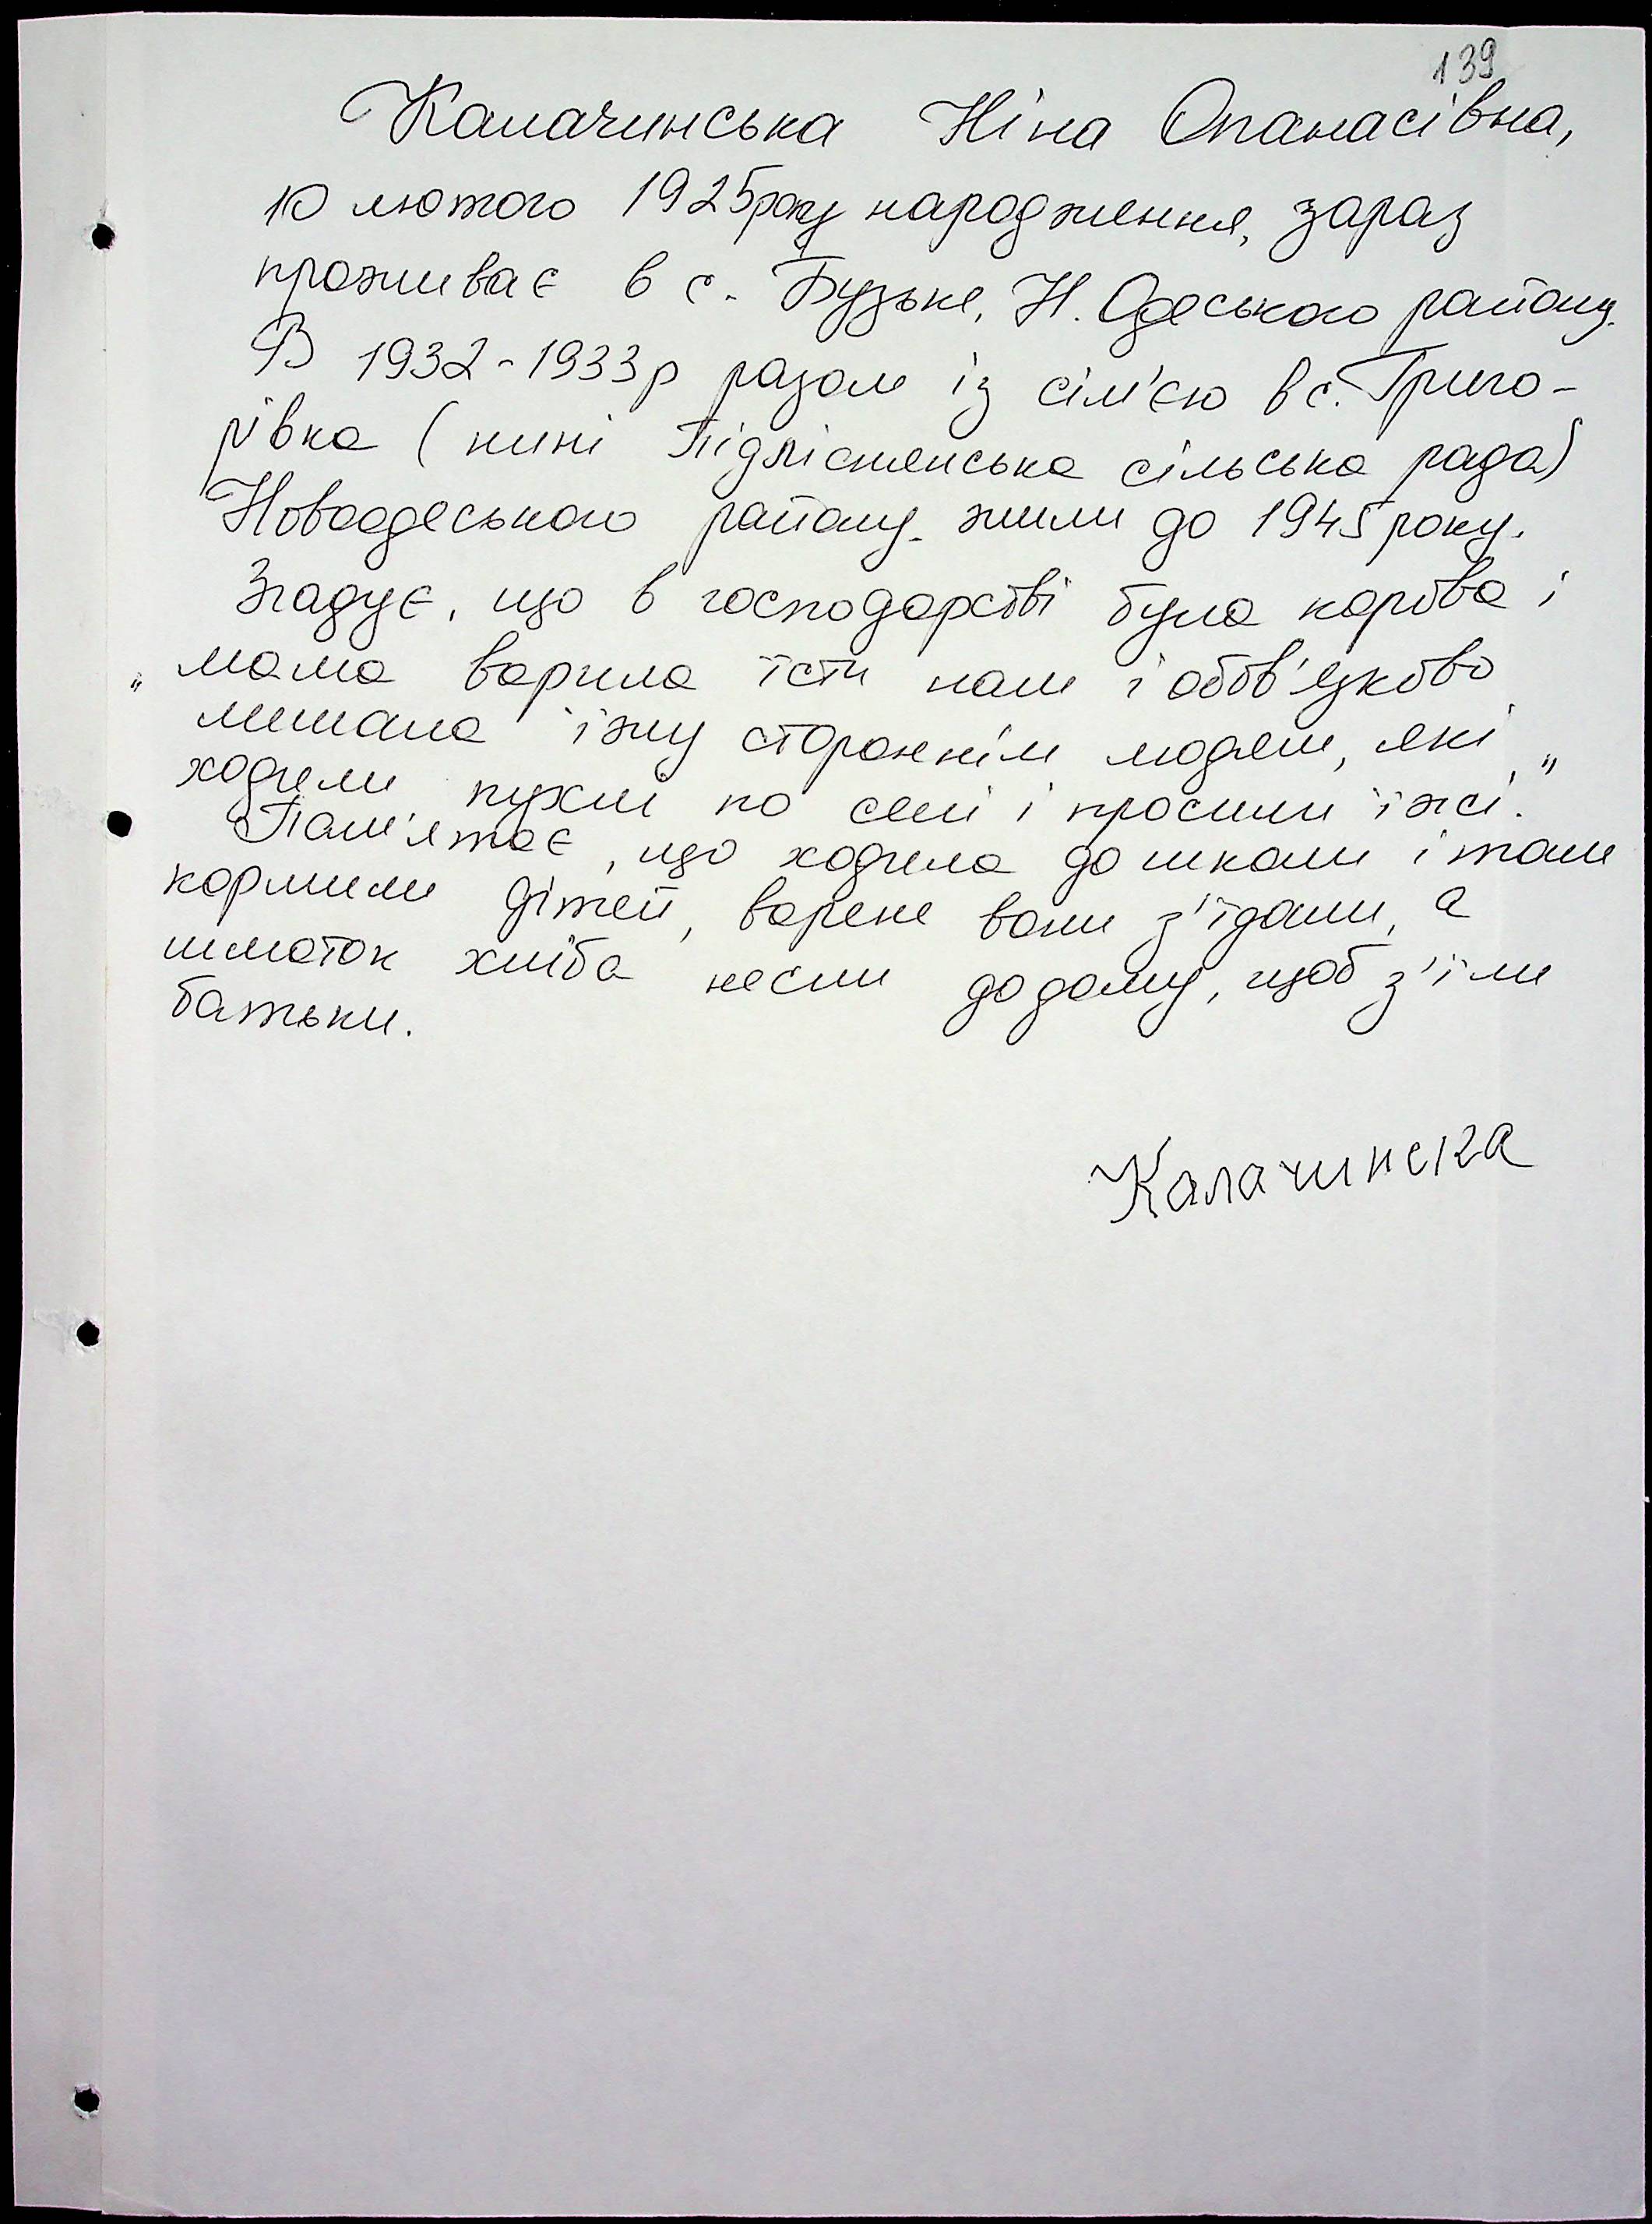 139
Калачинська Ніна Опанасівна,
10 лютого 1925року народження, зараз
проживає в с. Бузьке, Н. Одеського району.
В 1932-1933р разом із сім'єю в с. Григо-
рівка (нині Підлісненська сільська рада)
Новоодеського району жили до 1945 року.
Згадує, що в господарстві була корова і
„мама варила їсти нам і обов'язково
лишала їжу стороннім людям, які
ходили пухлі по селі і просили їжі."
Пам'ятає, що ходила до школи і там
кормили дітей, варене вони з'їдали, а
шматок хліба несли додому, щоб з'їли
батьки.
Калачинска